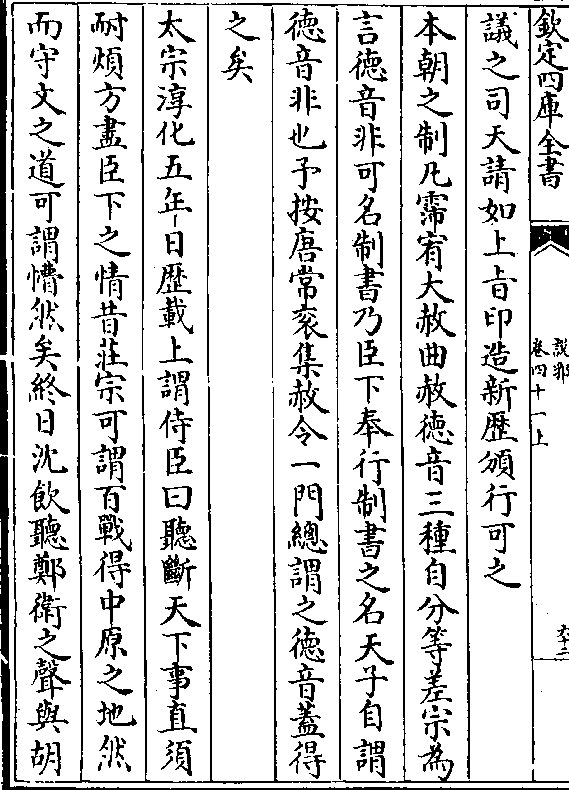 欽定四庫全書
說郛
卷四十一上
議之司天請如上㫖印造新歴頒行可之
本朝之制凡霈宥大赦曲赦徳音三種自分等差宗為
言徳音非可名制書乃臣下奉行制書之名天子自謂
徳音非也予按唐常衮集赦令一門總謂之徳音蓋得
之矣
太宗淳化五年日歴載上謂侍臣曰聽斷天下事直須
耐煩方盡臣下之情昔莊宗可謂百戰得中原之地然
而守文之道可謂懵然矣終日沈飲聽鄭衛之聲與胡